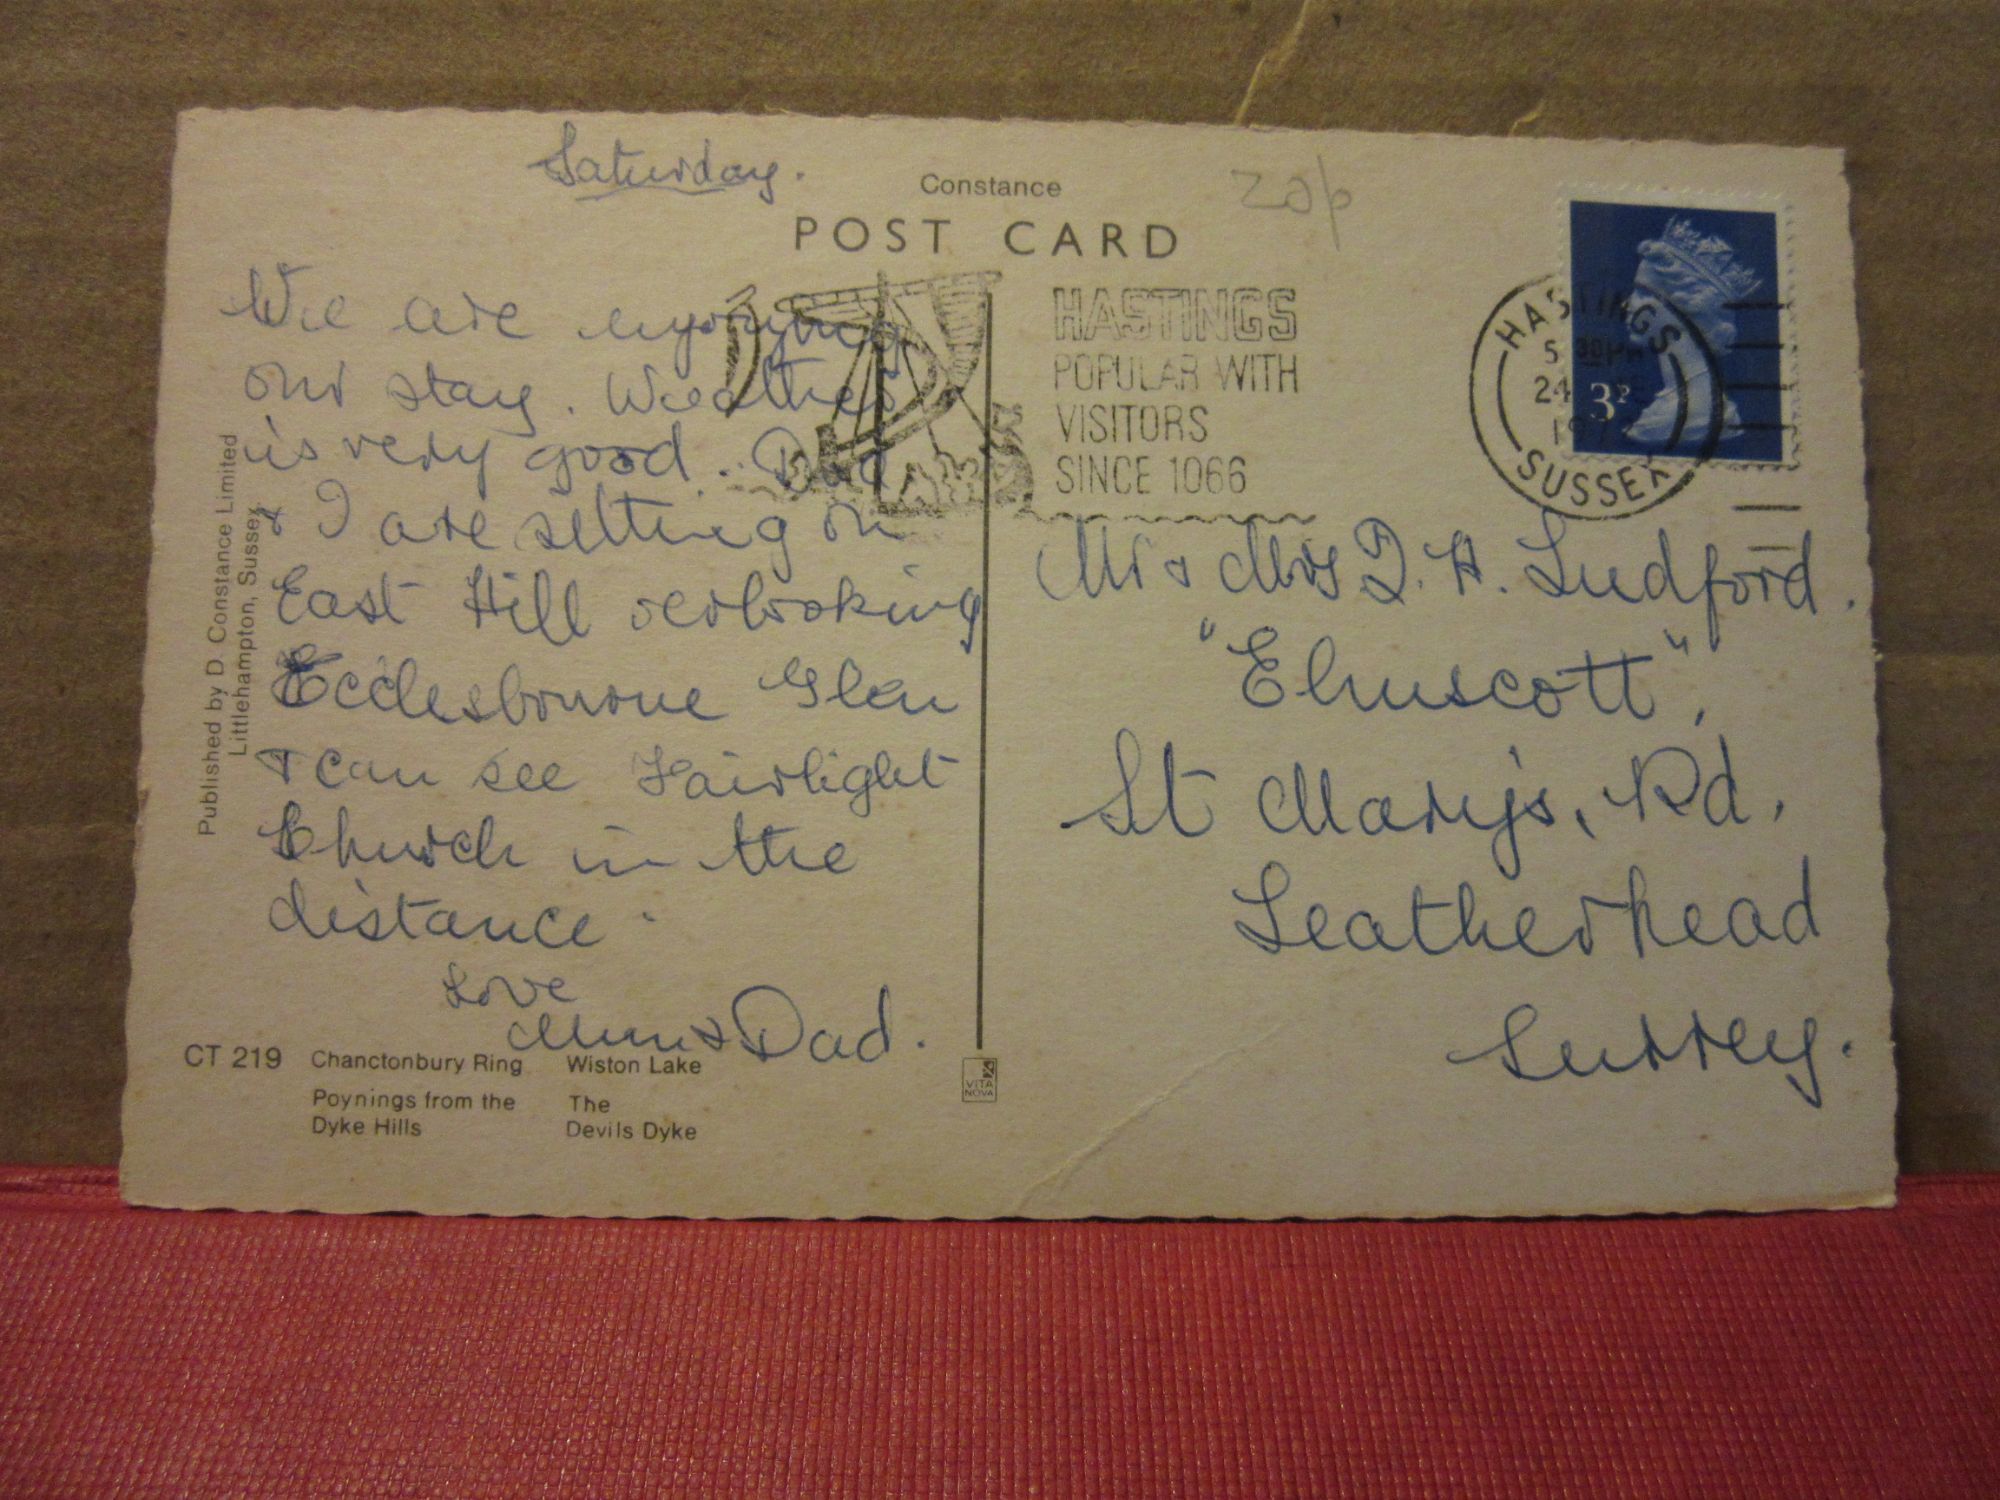 Saturday.
Constance
20p
POST CARD
We are enjoying
our stay. Weather
is very good. Dad
& I are setting on
East Hill overlooking
Ecclesbourne Glen
& can see Fairlight
Church in the
distance.
Love
Mum & Dad.
Published by D Constance Limited
Littlehampton, Sussex
CT 219
Chanctonbury Ring
Wiston Lake
Poynings from the
Dyke Hills
The
Devils Dyke
VITA
NOVA
HASTINGS
POPULAR WITH
VISITORS
SINCE 1066
HASTINGS
5 30PM
24
SUSSEX
3P
Mr & Mrs D. H. Ludford.
"Elmscott",
St Mary's, Rd,
Leatherhead
Surrey.